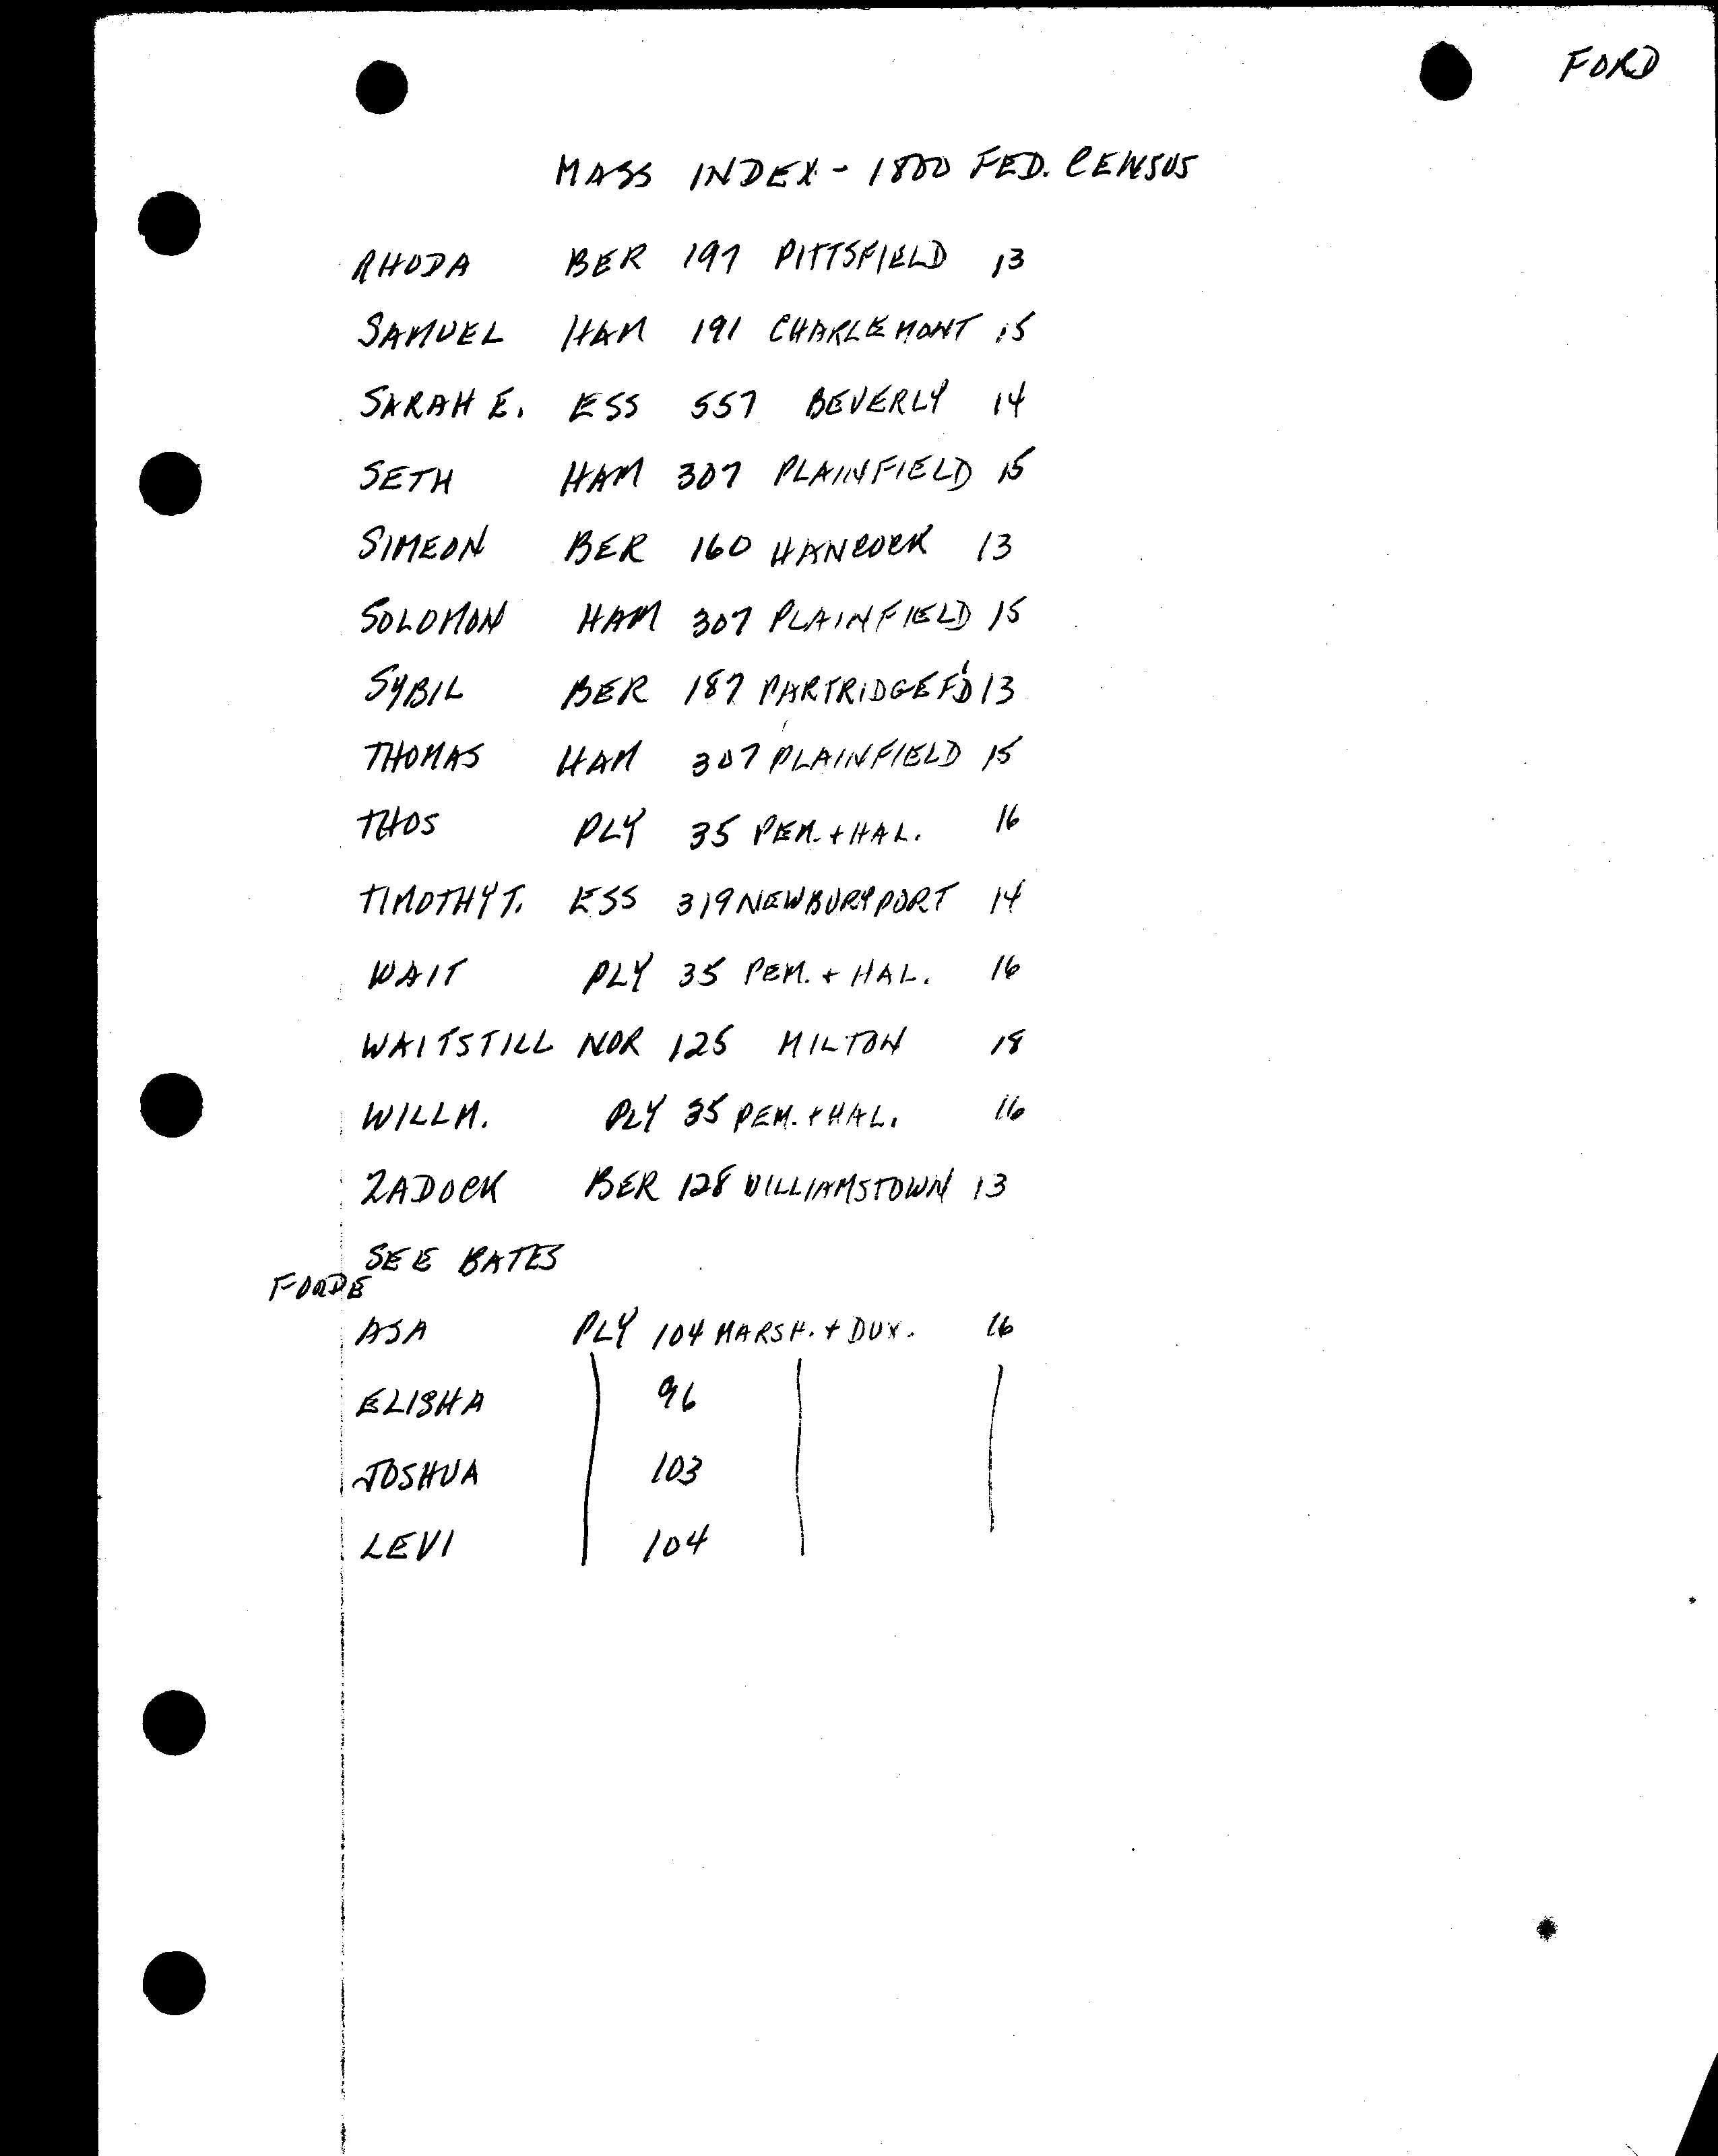 FORD
MASS INDEX - 1800 FED. CENSUS
RHODA BER 197 PITTSFIELD 13
SAMUEL HAM 191 CHARLEMONT 15
SARAH E. ESS 557 BEVERLY 14
SETH HAM 307 PLAINFIELD 15
SIMEON BER 160 HANCOCK 13
SOLOMON HAM 307 PLAINFIELD 15
SYBIL BER 187 PARTRIDGEF'D 13
THOMAS HAM 307 PLAINFIELD 15
THOS PLY 35 PEM. + HAL. 16
TIMOTHY T. ESS 319 NEWBURYPORT 14
WAIT PLY 35 PEM. + HAL. 16
WAITSTILL NOR 125 MILTON 18
WILLM. PLY 35 PEM. + HAL. 16
ZADOCK BER 128 WILLIAMSTOWN 13
SEE BATES
FORDE
ASA PLY 104 MARSH. + DUX. 16
ELISHA 96
JOSHUA 103
LEVI 104